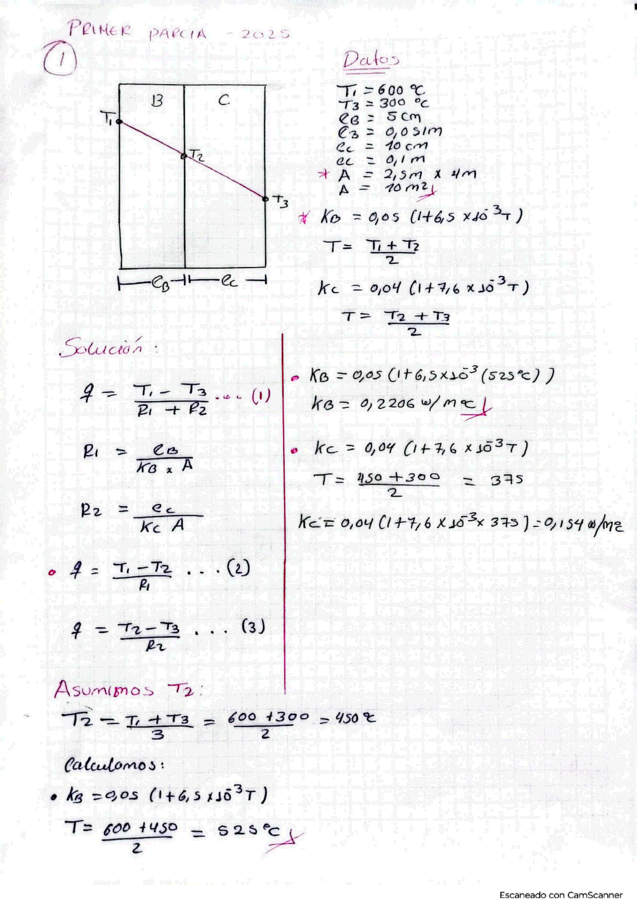 PRIMER PARCIA - 2025
1
Datos
B C
T1
T2
T3
eB ec
T1 = 600 °C
T3 = 300 °C
eB = 5cm
eB = 0,051m
ec = 10cm
ec = 0,1 m
* A = 2,5m x 4m
A = 10m2
* KB = 0,05 (1+6,5 x10^-3 T)
T = (T1 + T2)/2
Kc = 0,04 (1+7,6 x10^-3 T)
T = (T2 + T3)/2
Solución:
q = (T1 - T3)/(R1 + R2) ... (1)
R1 = eB/(KB x A)
R2 = ec/(Kc A)
• q = (T1 - T2)/R1 ... (2)
q = (T2 - T3)/R2 ... (3)
• KB = 0,05 (1+6,5x10^-3 (525°C))
KB = 0,2206 w/m°C
• Kc = 0,04 (1+7,6 x10^-3 T)
T = (450 + 300)/2 = 375
Kc = 0,04 (1+7,6 x10^-3 x 375) = 0,154 w/m°C
Asumimos T2:
T2 = (T1 + T3)/3 = (600 + 300)/2 = 450°C
Calculamos:
• KB = 0,05 (1+6,5 x10^-3 T)
T = (600 + 450)/2 = 525°C
Escaneado con CamScanner